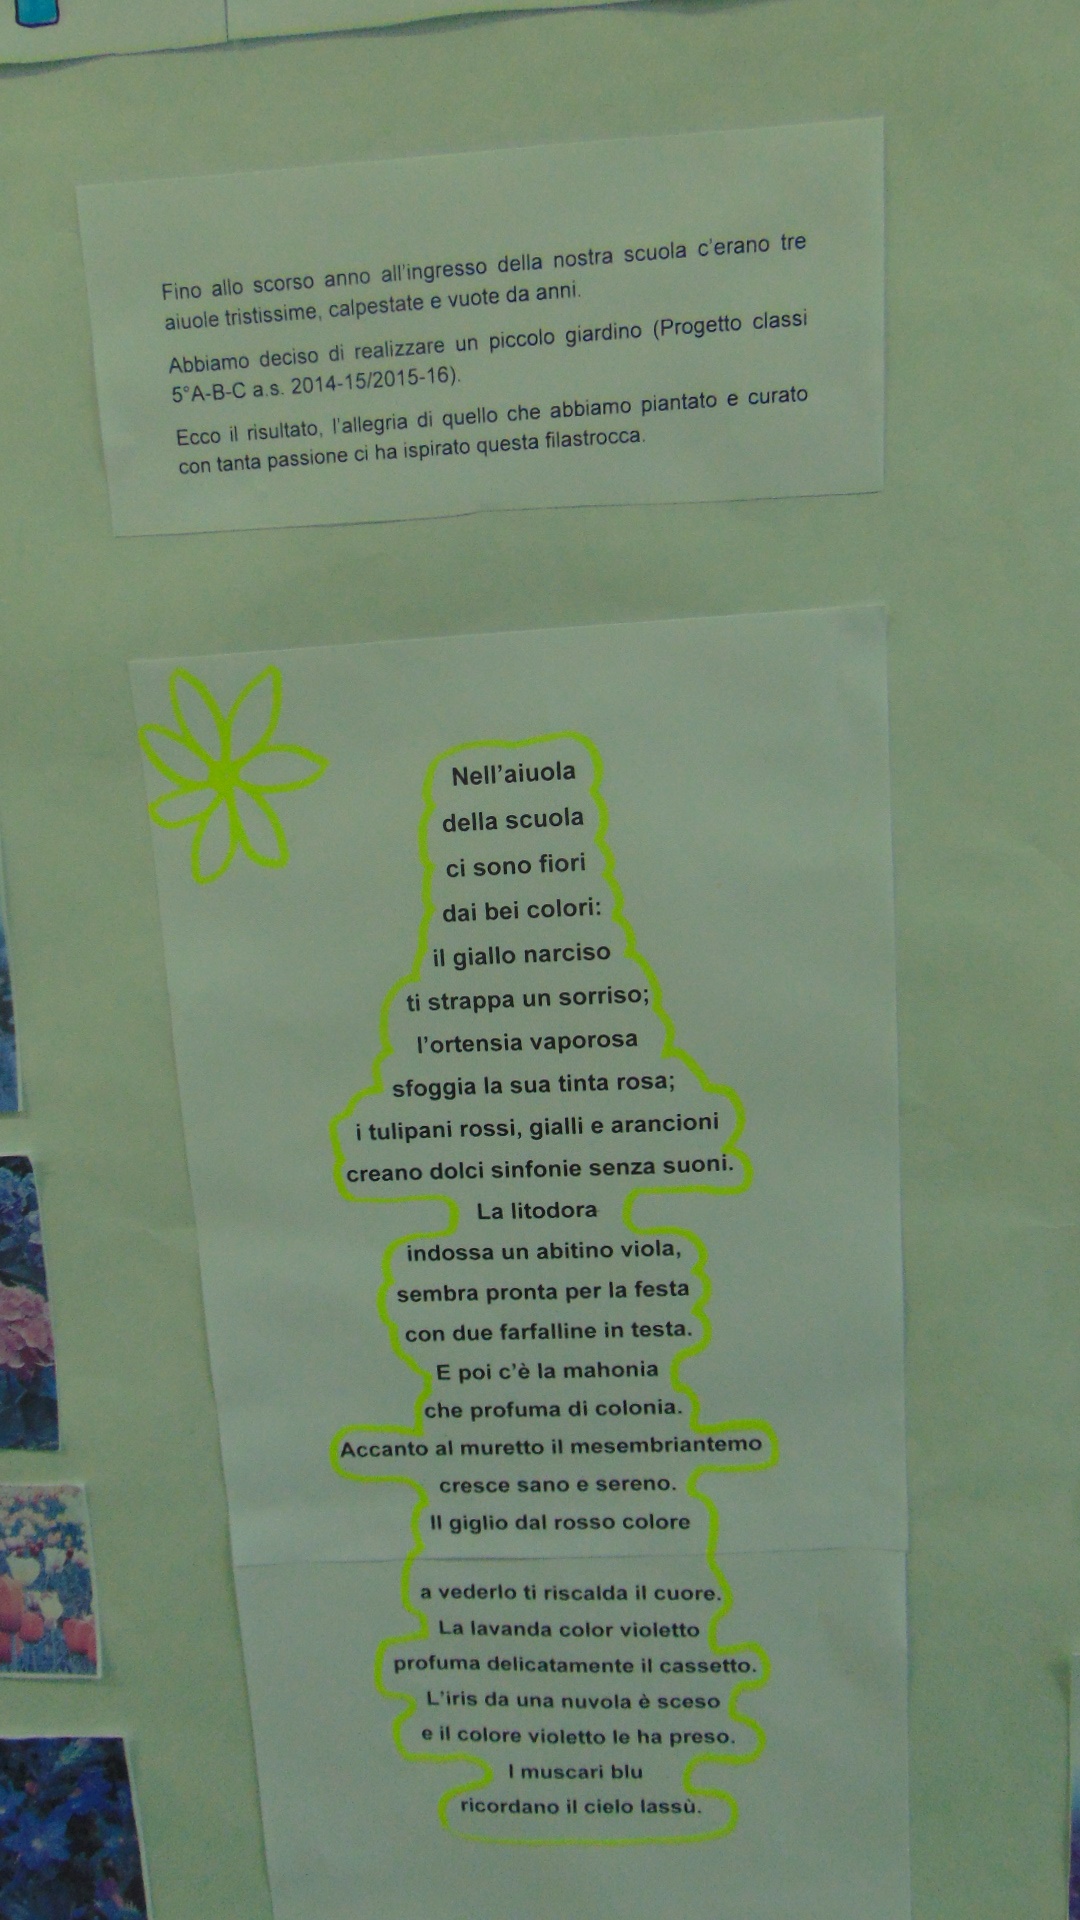 Fino allo scorso anno all'ingresso della nostra scuola c'erano tre
aiuole tristissime, calpestate e vuote da anni.
Abbiamo deciso di realizzare un piccolo giardino (Progetto classi
5°A-B-C a.s. 2014-15/2015-16).
Ecco il risultato, l'allegria di quello che abbiamo piantato e curato
con tanta passione ci ha ispirato questa filastrocca.
Nell'aiuola
della scuola
ci sono fiori
dai bei colori:
il giallo narciso
ti strappa un sorriso;
l'ortensia vaporosa
sfoggia la sua tinta rosa;
i tulipani rossi, gialli e arancioni
creano dolci sinfonie senza suoni.
La litodora
indossa un abitino viola,
sembra pronta per la festa
con due farfalline in testa.
E poi c'è la mahonia
che profuma di colonia.
Accanto al muretto il mesembriantemo
cresce sano e sereno.
Il giglio dal rosso colore
a vederlo ti riscalda il cuore.
La lavanda color violetto
profuma delicatamente il cassetto.
L'iris da una nuvola è sceso
e il colore violetto le ha preso.
I muscari blu
ricordano il cielo lassù.